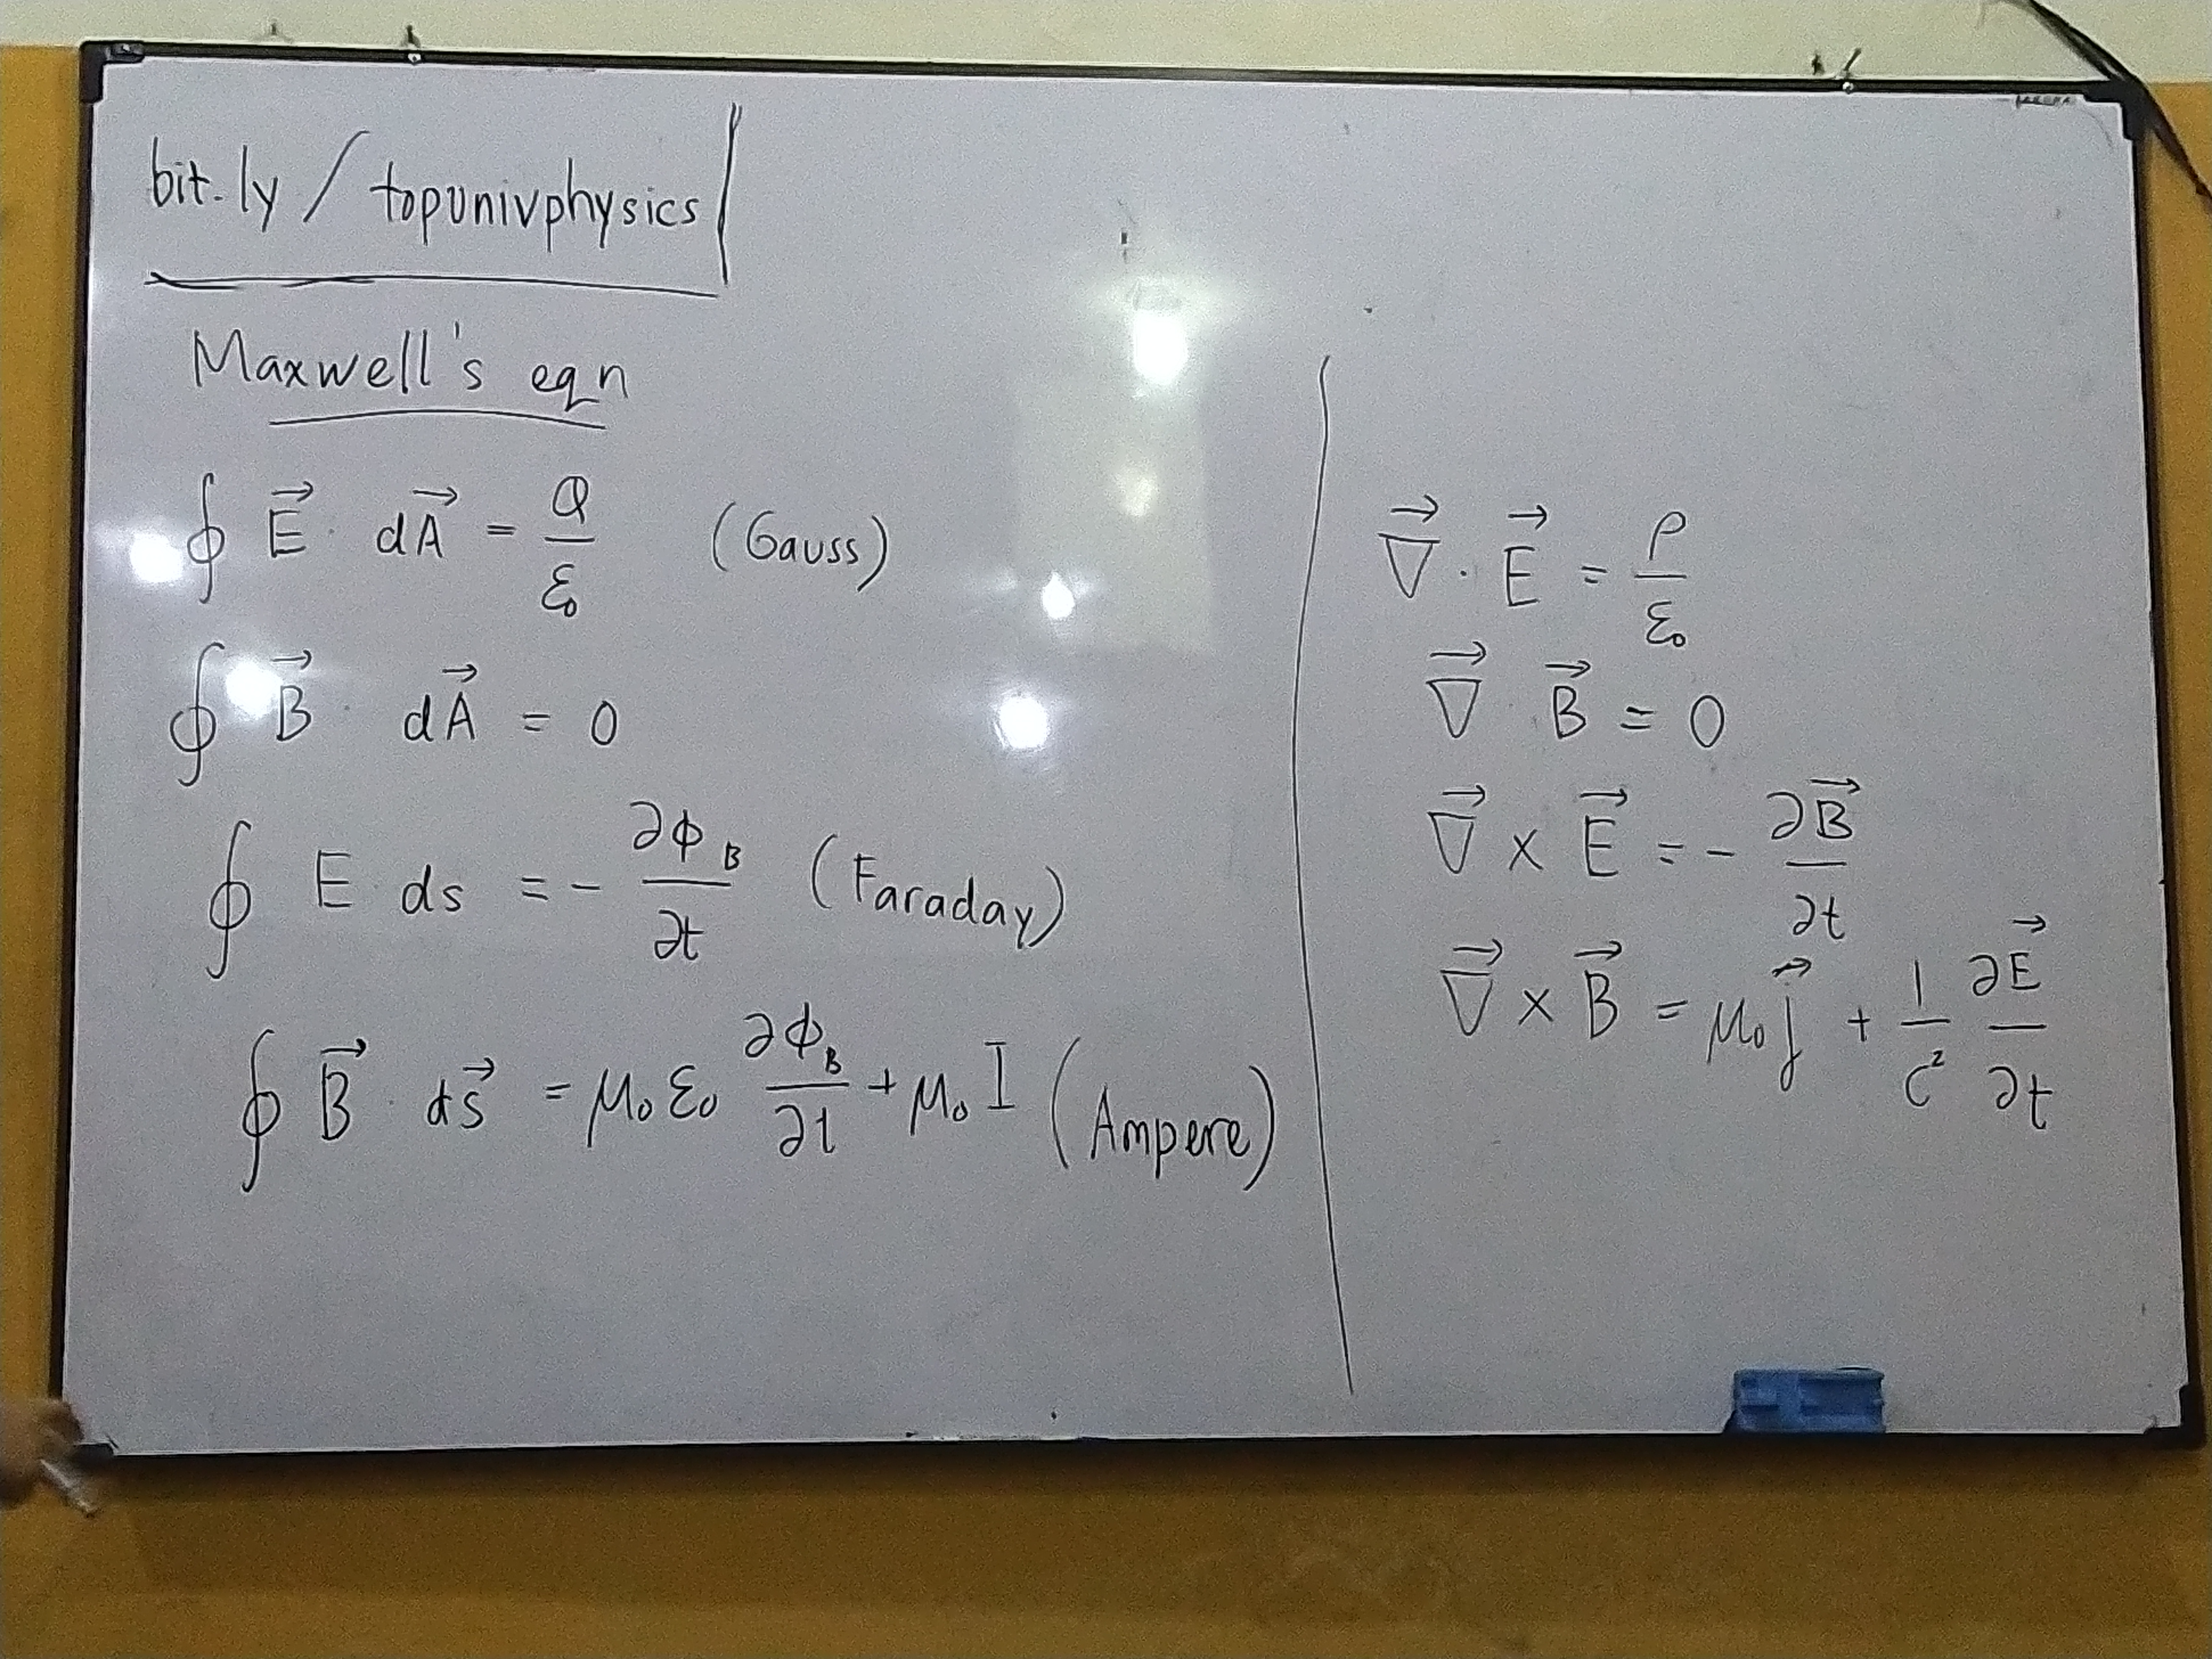 bit.ly/topunivphysics
Maxwell's eqn
∮ E⃗ · dA⃗ = Q/ε₀ (Gauss)
∮ B⃗ · dA⃗ = 0
∮ E · ds = - ∂ϕ_B/∂t (Faraday)
∮ B⃗ · ds⃗ = μ₀ε₀ ∂ϕ_B/∂t + μ₀I (Ampere)
∇⃗ · E⃗ = ρ/ε₀
∇⃗ · B⃗ = 0
∇⃗ × E⃗ = - ∂B⃗/∂t
∇⃗ × B⃗ = μ₀j⃗ + 1/c² ∂E⃗/∂t